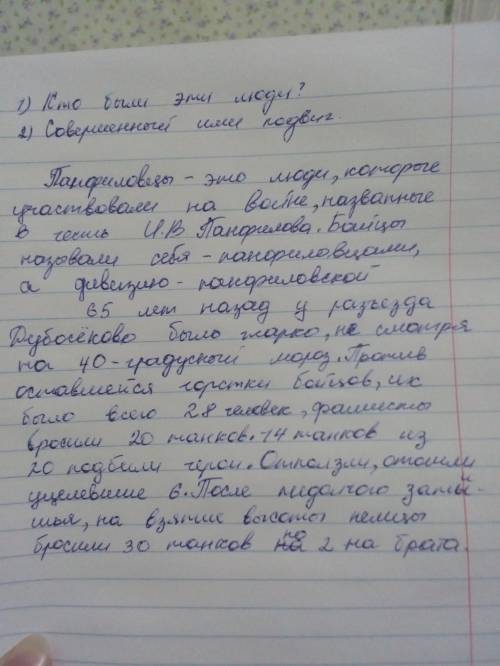 1) Кто были эти люди?
2) Совершенный ими подвиг.
Панфиловцы - это люди, которые
участвовали на войне, названные
в честь И.В Панфилова. Бойцы
называли себя - панфиловцами,
а дивизию - панфиловской
65 лет назад у разъезда
Дубосёково было жарко, не смотря
на 40-градусный мороз. Против
оставшейся горстки бойцов, их
было всего 28 человек, фашисты
бросили 20 танков. 14 танков из
20 подбили герои. Отползли, отошли
уцелевшие 6. После недолгого заты-
шья, на взятие высоты немцы
бросили 30 танков по 2 на брата.